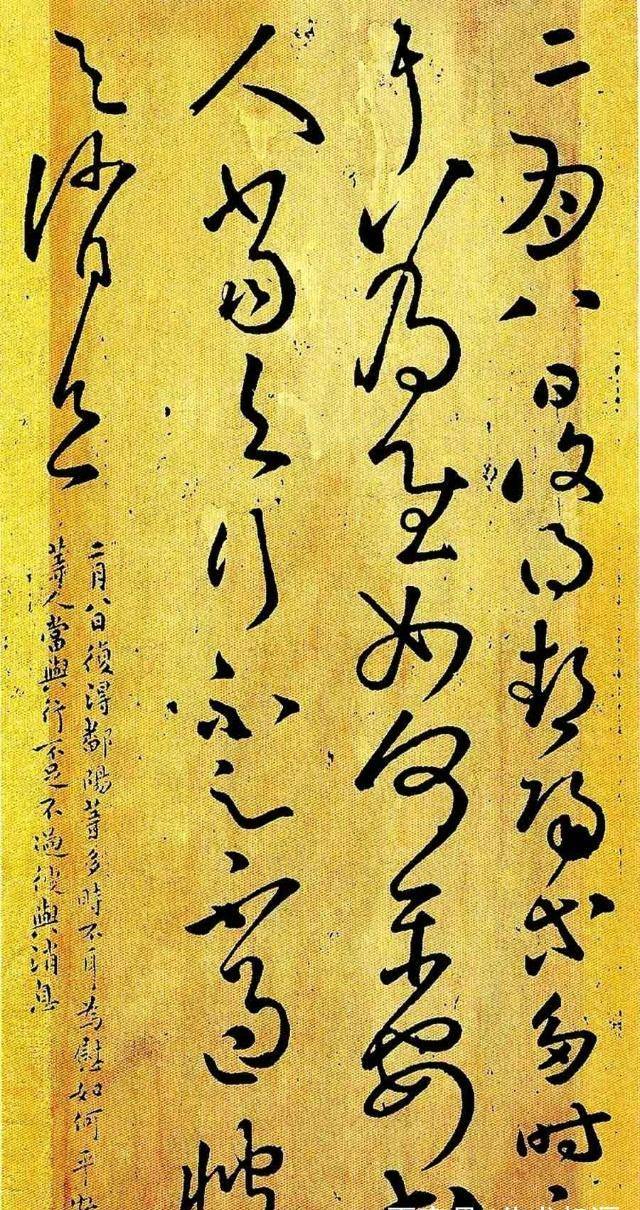 二月八日復得鄱陽等多時
耳為慰如何平安
人當與行不足不過
與消息
二月八日復得鄱陽等多時不耳為慰如何平安
等人當與行不足不過復與消息